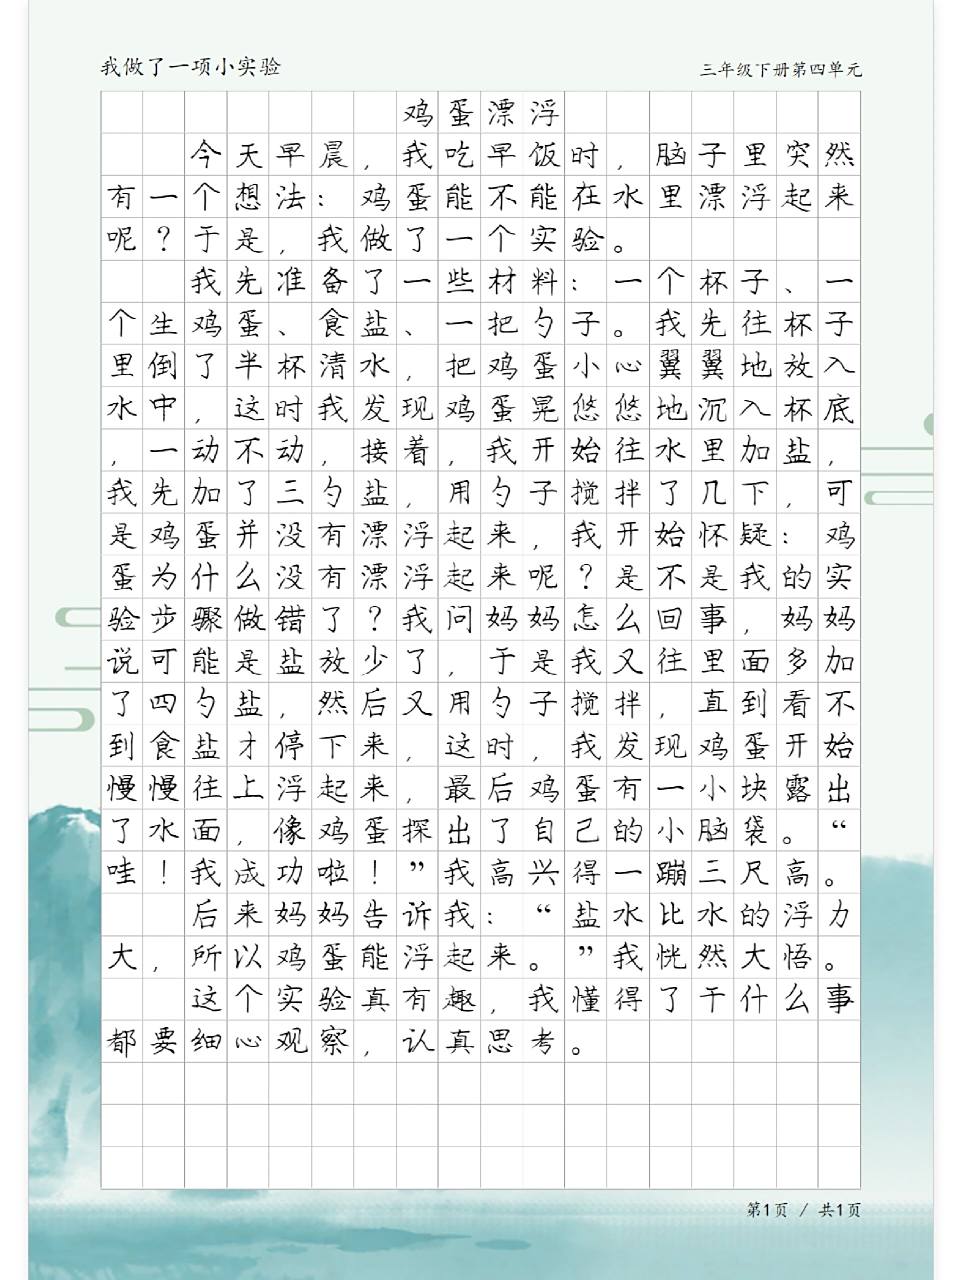 我做了一项小实验
三年级下册第四单元
鸡蛋漂浮
今天早晨，我吃早饭时，脑子里突然
有一个想法：鸡蛋能不能在水里漂浮起来
呢？于是，我做了一个实验。
我先准备了一些材料：一个杯子、一
个生鸡蛋、食盐、一把勺子。我先往杯子
里倒了半杯清水，把鸡蛋小心翼翼地放入
水中，这时我发现鸡蛋晃悠悠地沉入杯底
，一动不动，接着，我开始往水里加盐，
我先加了三勺盐，用勺子搅拌了几下，可
是鸡蛋并没有漂浮起来，我开始怀疑：鸡
蛋为什么没有漂浮起来呢？是不是我的实
验步骤做错了？我问妈妈怎么回事，妈妈
说可能是盐放少了，于是我又往里面多加
了四勺盐，然后又用勺子搅拌，直到看不
到食盐才停下来，这时，我发现鸡蛋开始
慢慢往上浮起来，最后鸡蛋有一小块露出
了水面，像鸡蛋探出了自己的小脑袋。“
哇！我成功啦！”我高兴得一蹦三尺高。
后来妈妈告诉我：“盐水比水的浮力
大，所以鸡蛋能浮起来。”我恍然大悟。
这个实验真有趣，我懂得了干什么事
都要细心观察，认真思考。
第1页 / 共1页